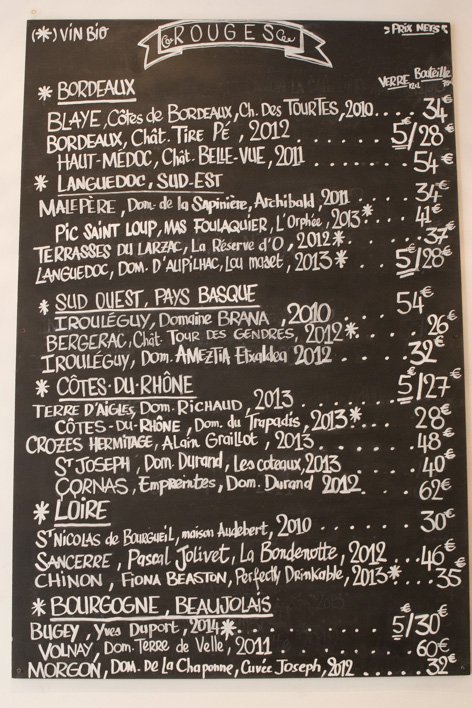 (*) VIN BIO
ROUGES
PRIX NETS
VERRE Bouteille
12cl
* BORDEAUX
BLAYE, Côtes de BORDEAUX, CH. DES TOURTES, 2010... 34€
BORDEAUX, CHÂT. TIRE PÉ, 2012 ...... 5€/28€
HAUT-MÉDOC, CHÂT. BELLE-VUE, 2011 ..... 54€
* LANGUEDOC, SUD-EST
MALEPÈRE, Dom. de la Sapinière, Archibald, 2011 .... 34€
PIC SAINT LOUP, MAS FOULAQUIER, L'Orphée, 2013*.. 41€
TERRASSES DU LARZAC, La Réserve d'O, 2012* .... 37€
LANGUEDOC, DOM. D'AUPILHAC, LOU MASET, 2013* .. 5€/28€
* SUD OUEST, PAYS BASQUE
IROULÉGUY, Domaine BRANA, 2010 54€
BERGERAC, Chât. TOUR DES GENDRES, 2012*... 26€
IROULÉGUY, Dom. AMEZTIA Etxaldea 2012 .... 32€
* CÔTES-DU-RHÔNE
TERRE D'AIGLES, DOM. RICHAUD, 2013 ...... 5€/27€
CÔTES-DU-RHÔNE, Dom. du Trapadis, 2013*.... 28€
CROZES HERMITAGE, ALAIN GRAILLOT, 2013 ...... 48€
ST JOSEPH, DOM. DURAND, Les coteaux, 2013 .... 40€
CORNAS, Empreintes, DOM. DURAND 2012 .... 62€
* LOIRE
ST NICOLAS DE BOURGUEIL, maison Audebert, 2010 .... 30€
SANCERRE, PASCAL JOLIVET, LA BONDENOTTE, 2012 ...46€
CHINON, FIONA BEASTON, Perfectly Drinkable, 2013*.. 35€
* BOURGOGNE, BEAUJOLAIS
BUGEY, Yves Duport, 2014* ........ 5€/30€
VOLNAY, Dom. TERRE DE Velle, 2011 ....... 60€
MORGON, DOM. DE LA CHAPONNE, Cuvée Joseph, 2012 .... 32€